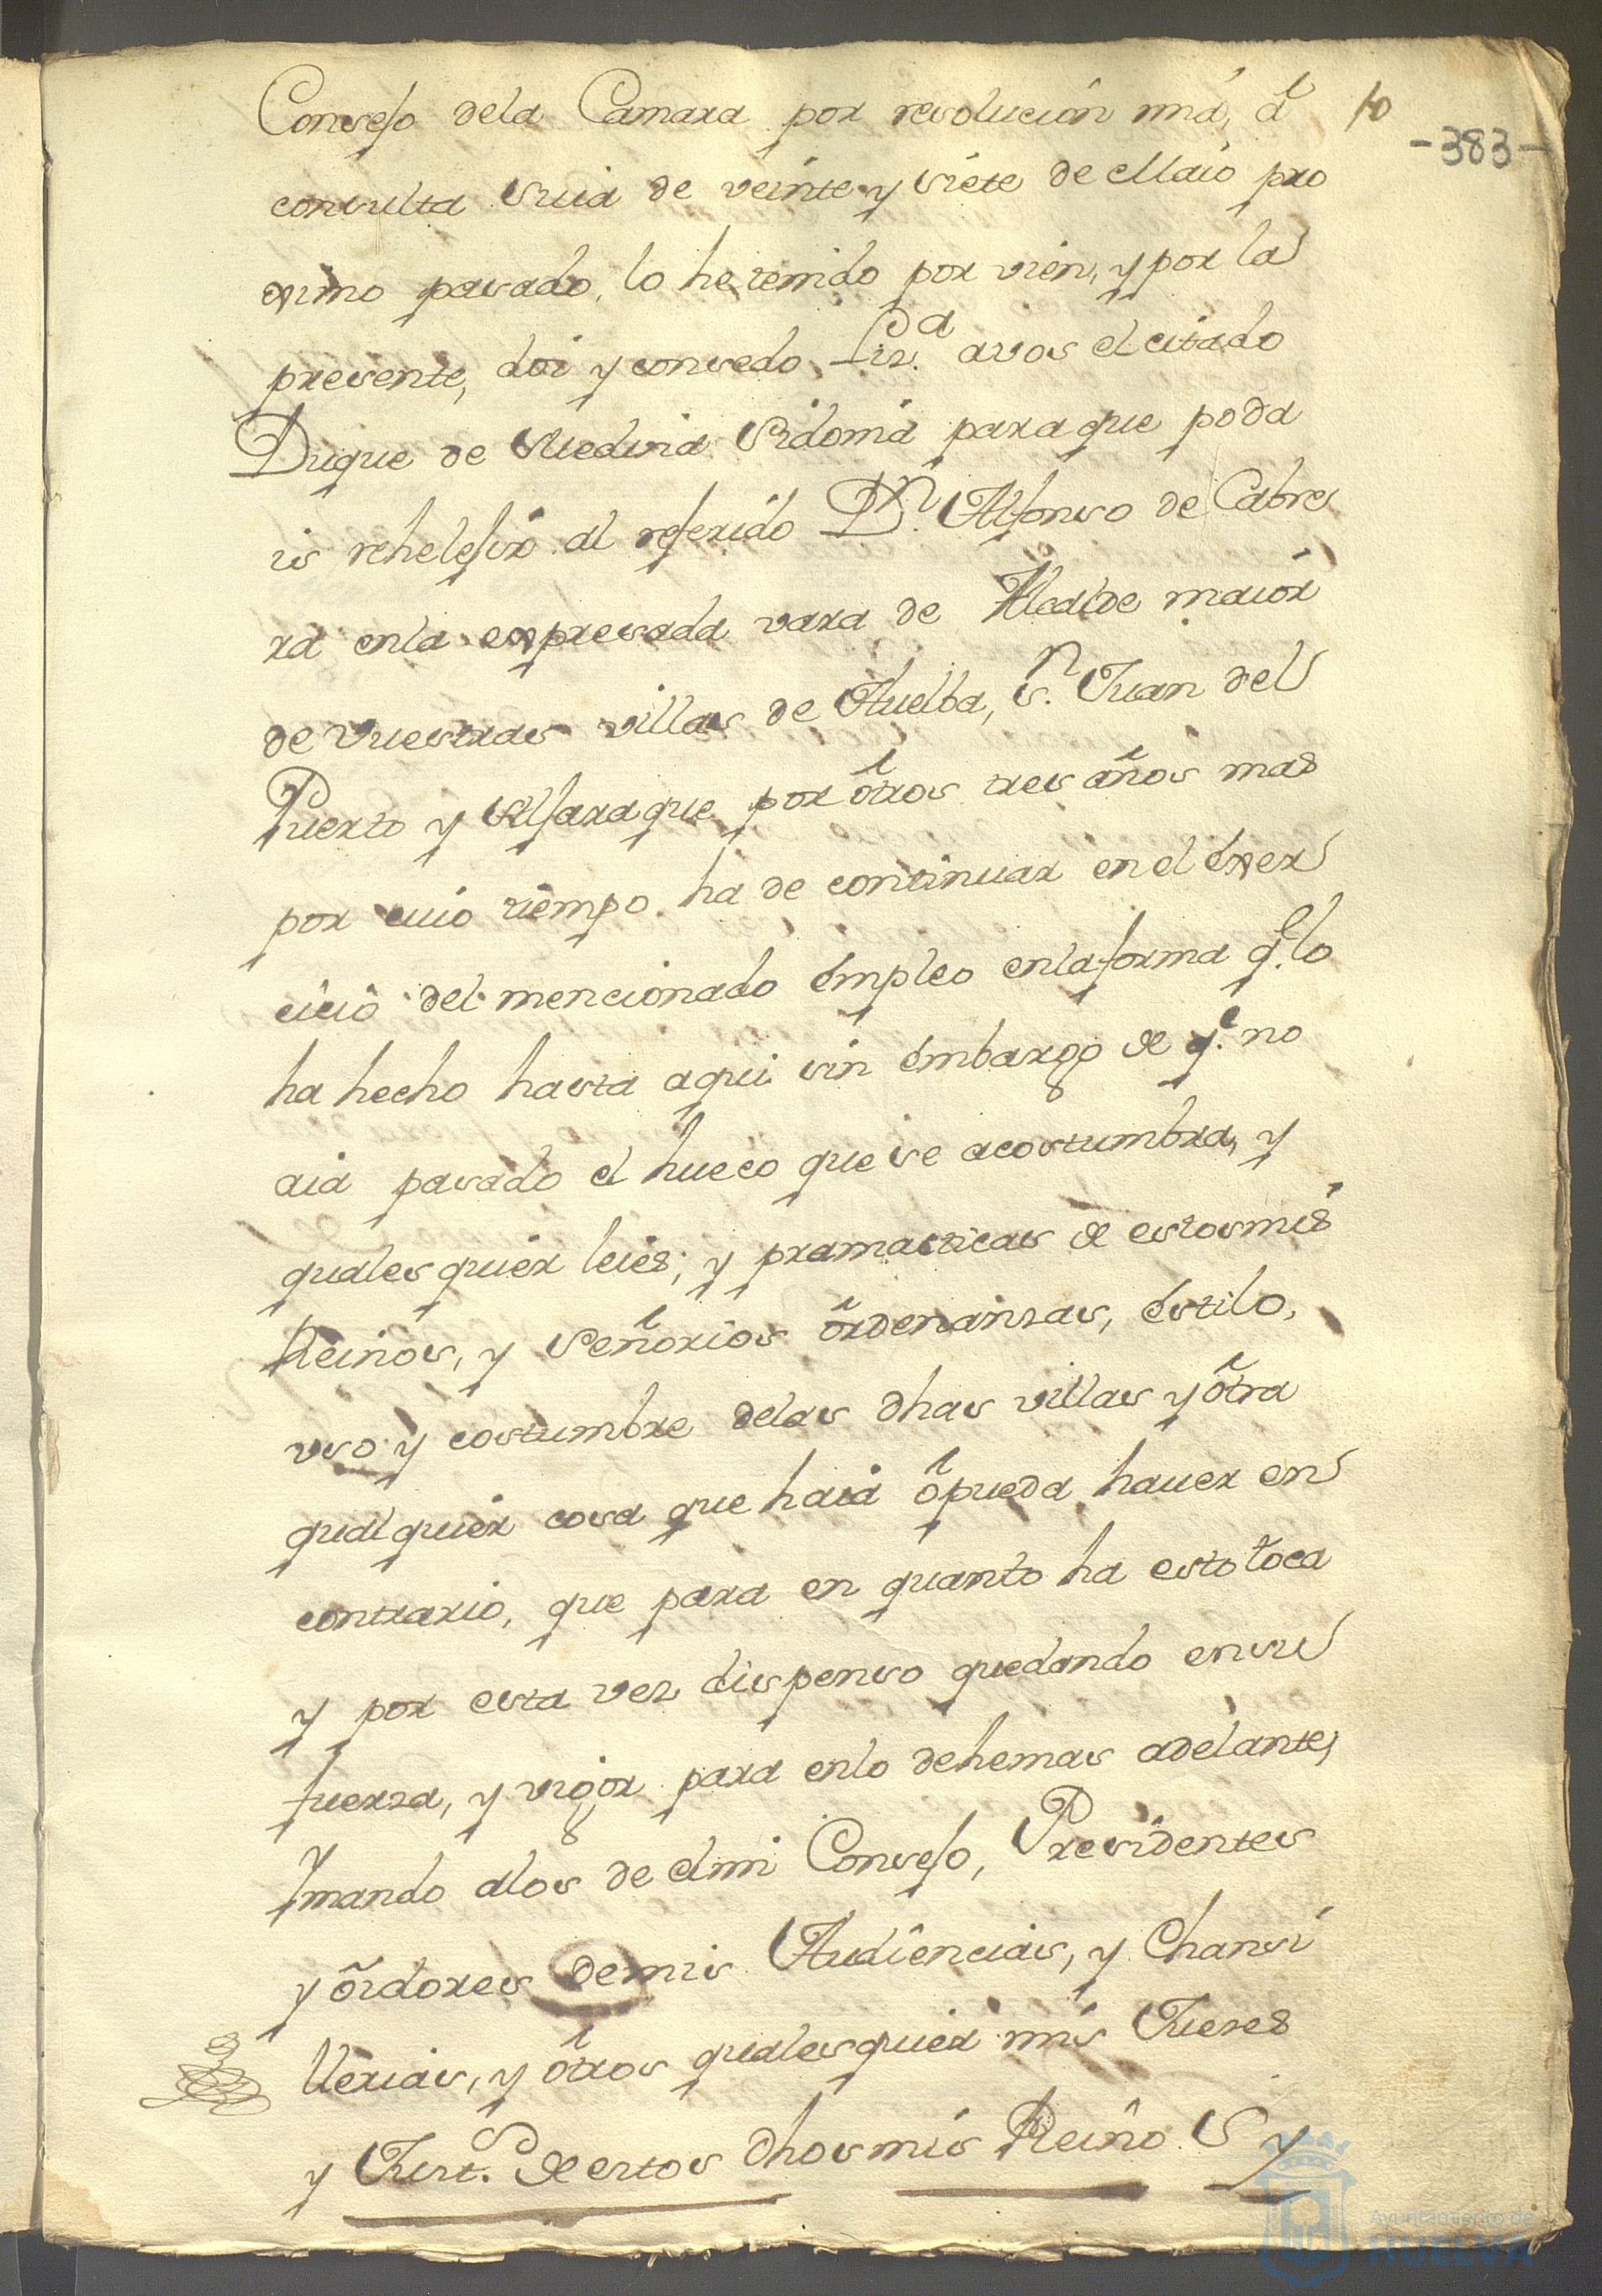 Consejo dela Camara por resolucion mia, â 10
-383-
consulta suia de veinte y siete de Maio pro
ximo pasado, lo he tenido por vien, y por la
presente, doi y consedo Liz.ª avos el citado
Duque de Medina Sidonia para que poda
is rehelejir al referido D.n Alfonso de Cabre
ra enla expresada vara de Alcalde maior
de vuestras villas de Huelba, S.n Juan del
Puerto y Aljaraque por ôtros tres años mas
por cuio tiempo ha de continuar en el êxer
cicio del mencionado êmpleo enla forma q.e lo
ha hecho hasta aqui sin êmbargo de q.e no
aia pasado el hueco que se acostumbra, y
quales quier leies, y pramaticas de estos mis
Reinos, y señorios ôrdenanzas, êstilo,
vso y costumbre delas dhas villas y ôtra
qualquier cosa que haia ô pueda hauer en
contrario, que para en quanto ha esto toca
y por esta vez dispenso quedando en su
fuerza, y vigor para enlo dehemas adelante,
Y mando alos de el mi Consejo, Presidentes
y ôidores de mis Audiencias, y Chansi
llerias, y ôtros quales quier mis Jueses
y Just.s de estos dhos mis Reino S y
Ayuntamiento de
HUELVA